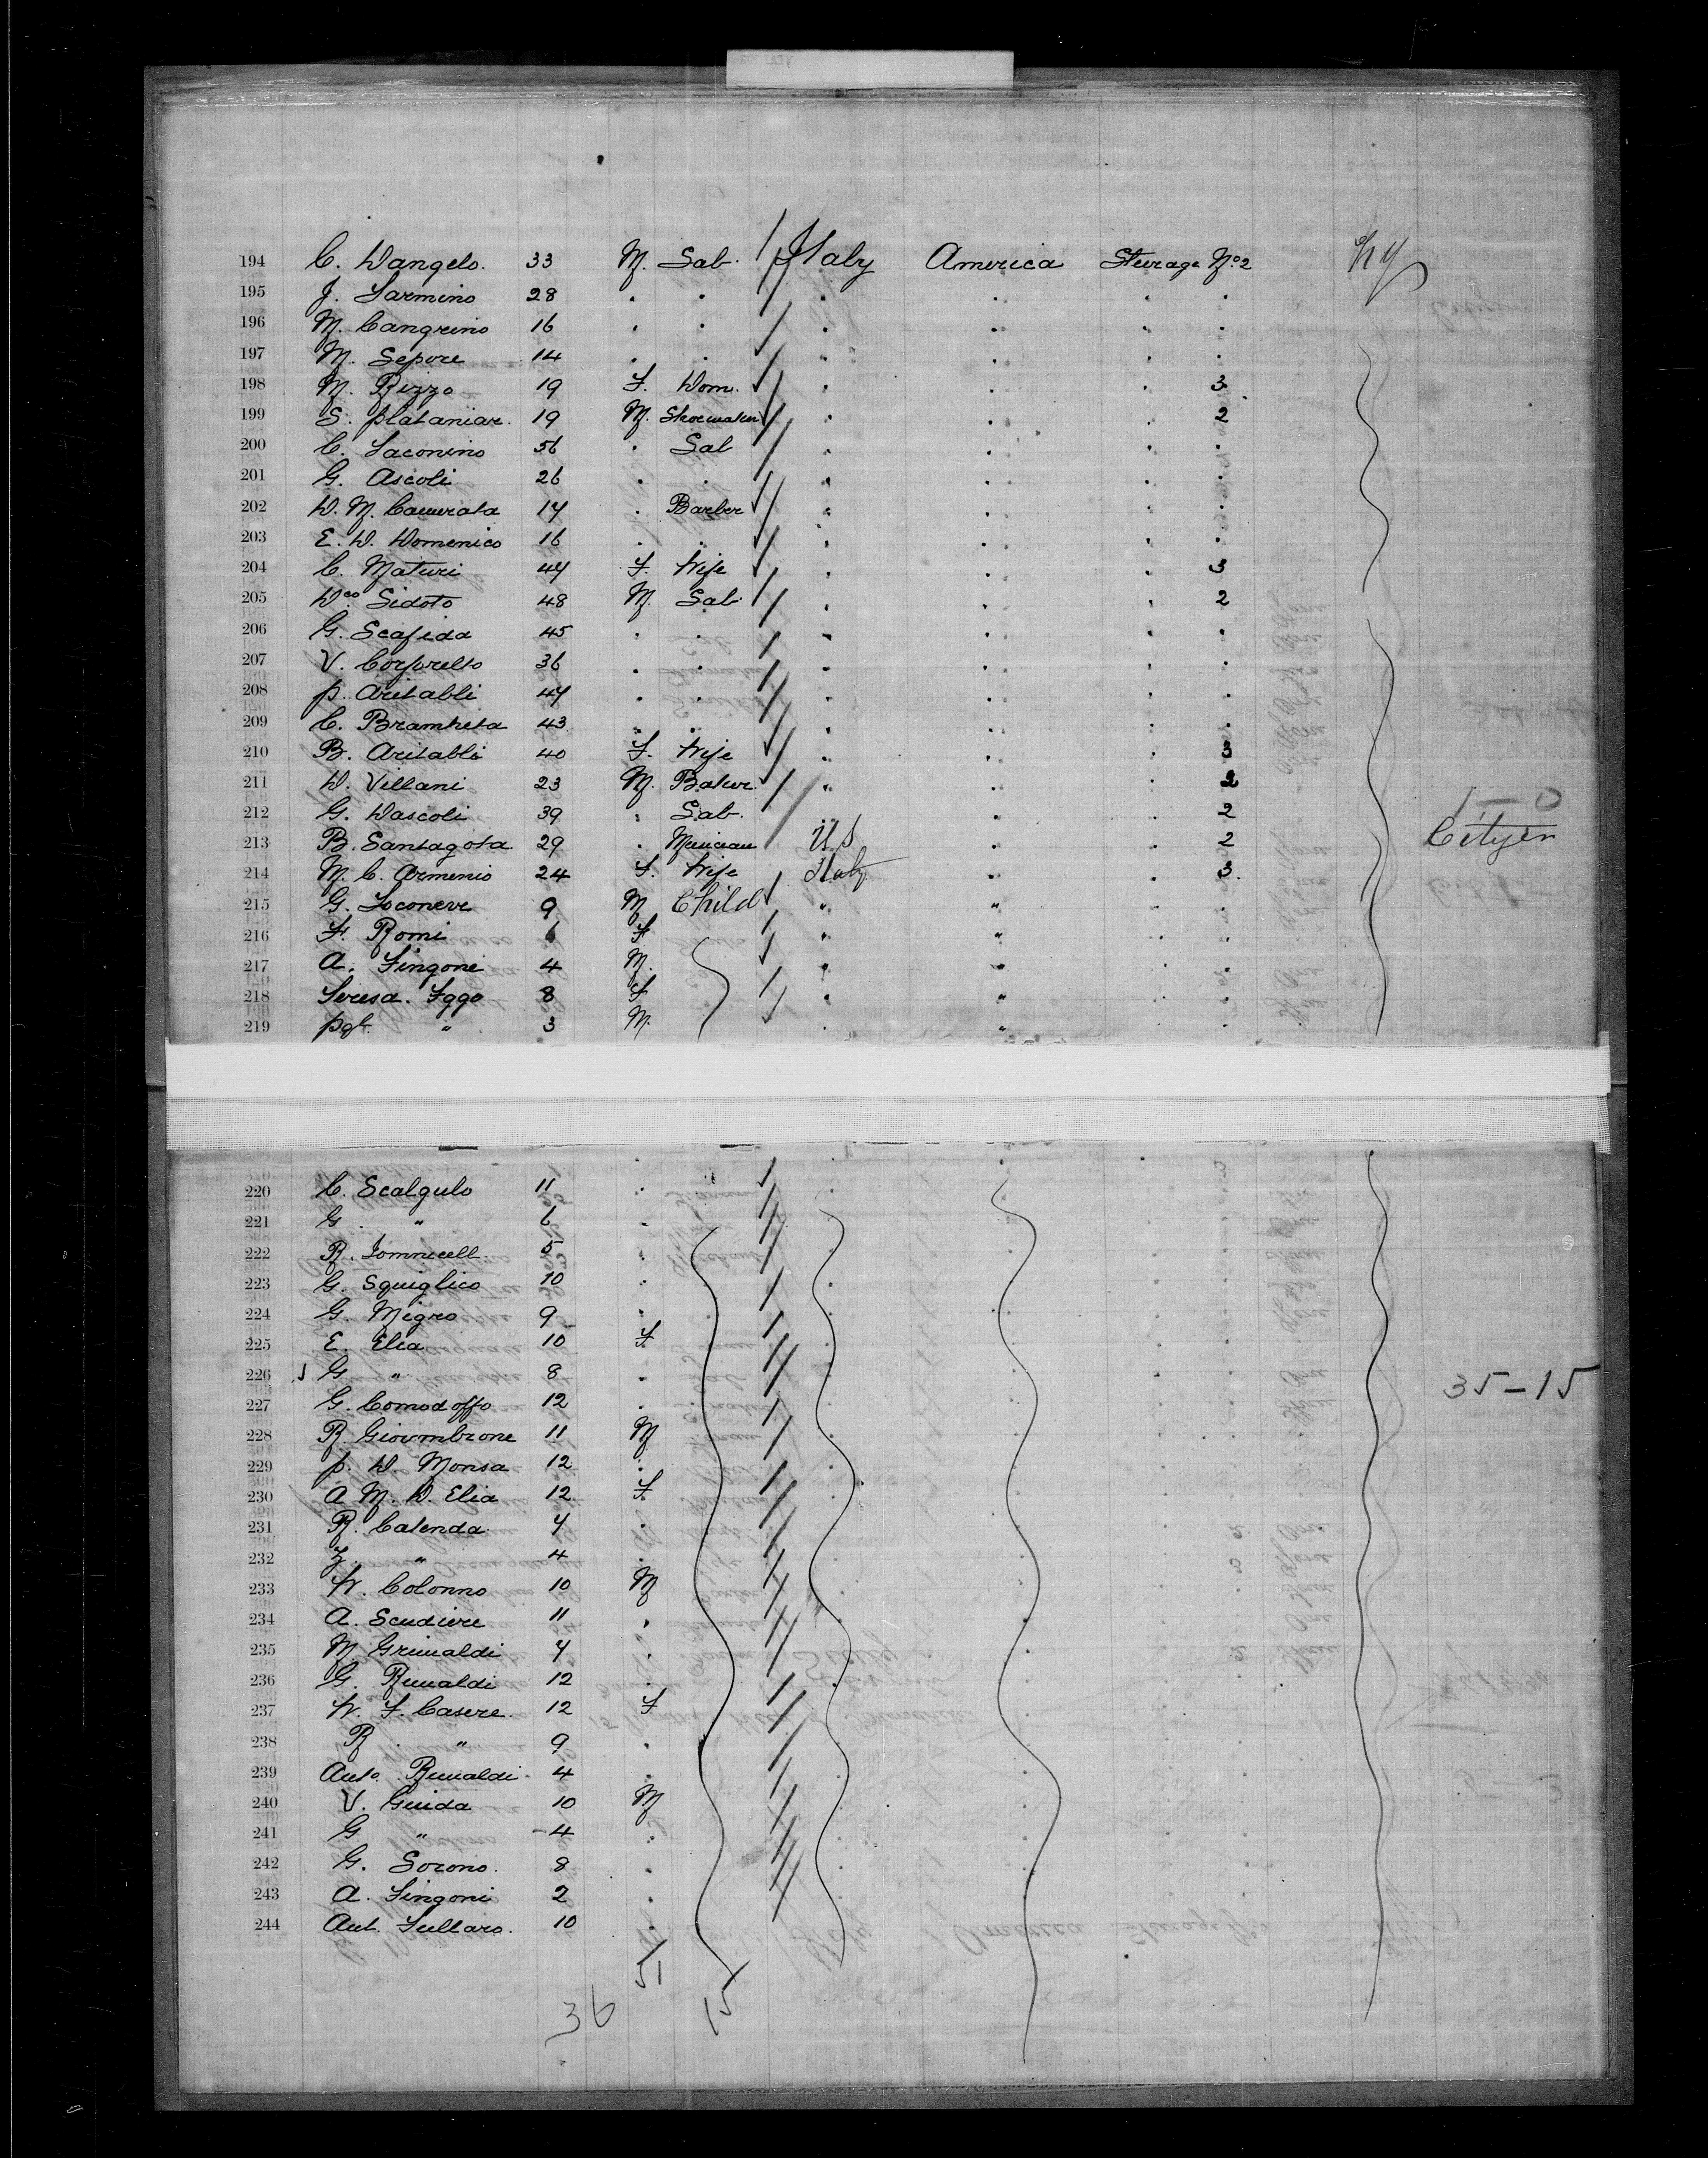 194 C. Dangelo. 33 M. Lab. Italy America Steerage No. 2 NY
195 J. Sarmino 28 . . . . . .
196 M. Cangreino 16 . . . . . .
197 M. Sepore 14 . . . . . .
198 M. Rizzo 19 F. Dom. . . . 3
199 S. Plataniar. 19 M. Shoemaker . . . 2
200 C. Iaconino 56 . Lab . . . .
201 G. Ascoli 26 . . . . . .
202 D. M. Camerata 17 . Barber " . . .
203 E. D. Domenico 16 . . . . . .
204 C. Maturi 47 F. Wife . . . 3
205 Dco Sidoto 48 M. Lab. . . . 2
206 G. Scafida 45 . . . . . .
207 V. Corporello 36 . . . . . .
208 P. Aritabli 47 . . . . . .
209 C. Bramheta 43 . . . . . .
210 B. Aritabli 40 F. Wife . . . 3
211 D. Villani 23 M. Baker " . . 2
212 G. Dascoli 39 . Lab. . . 2 1-0
213 B. Santagota 29 . Musician U.S . . 2 Cityen
214 M. C. Armenio 24 F. Wife Italy . . 3.
215 G. Loconeve 9 M Child " " . .
216 F. Romi 6 F " " . .
217 A. Fingone 4 M. " " . .
218 Teresa. Iggo 8 F . " . .
219 Pqt. " 3 M. . " .
220 C. Scalgulo 11 .
221 G. " 6 .
222 R. Iomnicell. 5 .
223 G. Squiglico 10 .
224 G. Migro 9 .
225 E. Elia 10 F
226 G " 8 . 35-15
227 G. Comodoffo 12 .
228 R. Giovmbrone 11 M
229 P. D. Monsa 12 .
230 A M. D. Elia 12 F.
231 R. Calenda 7 .
232 " 4 .
233 N. Colonno 10 M
234 A. Scudiere 11 .
235 M. Grimaldi 7 .
236 G. Rinaldi 12 .
237 N. F. Casere. 12 F
238 R. " 9 .
239 Anto. Rinaldi. 4 .
240 V. Guida 10 M
241 G " 4 .
242 G. Sorono. 8 .
243 A. Fingoni 2 .
244 Ant. Fullaro. 10 .
51
36 15